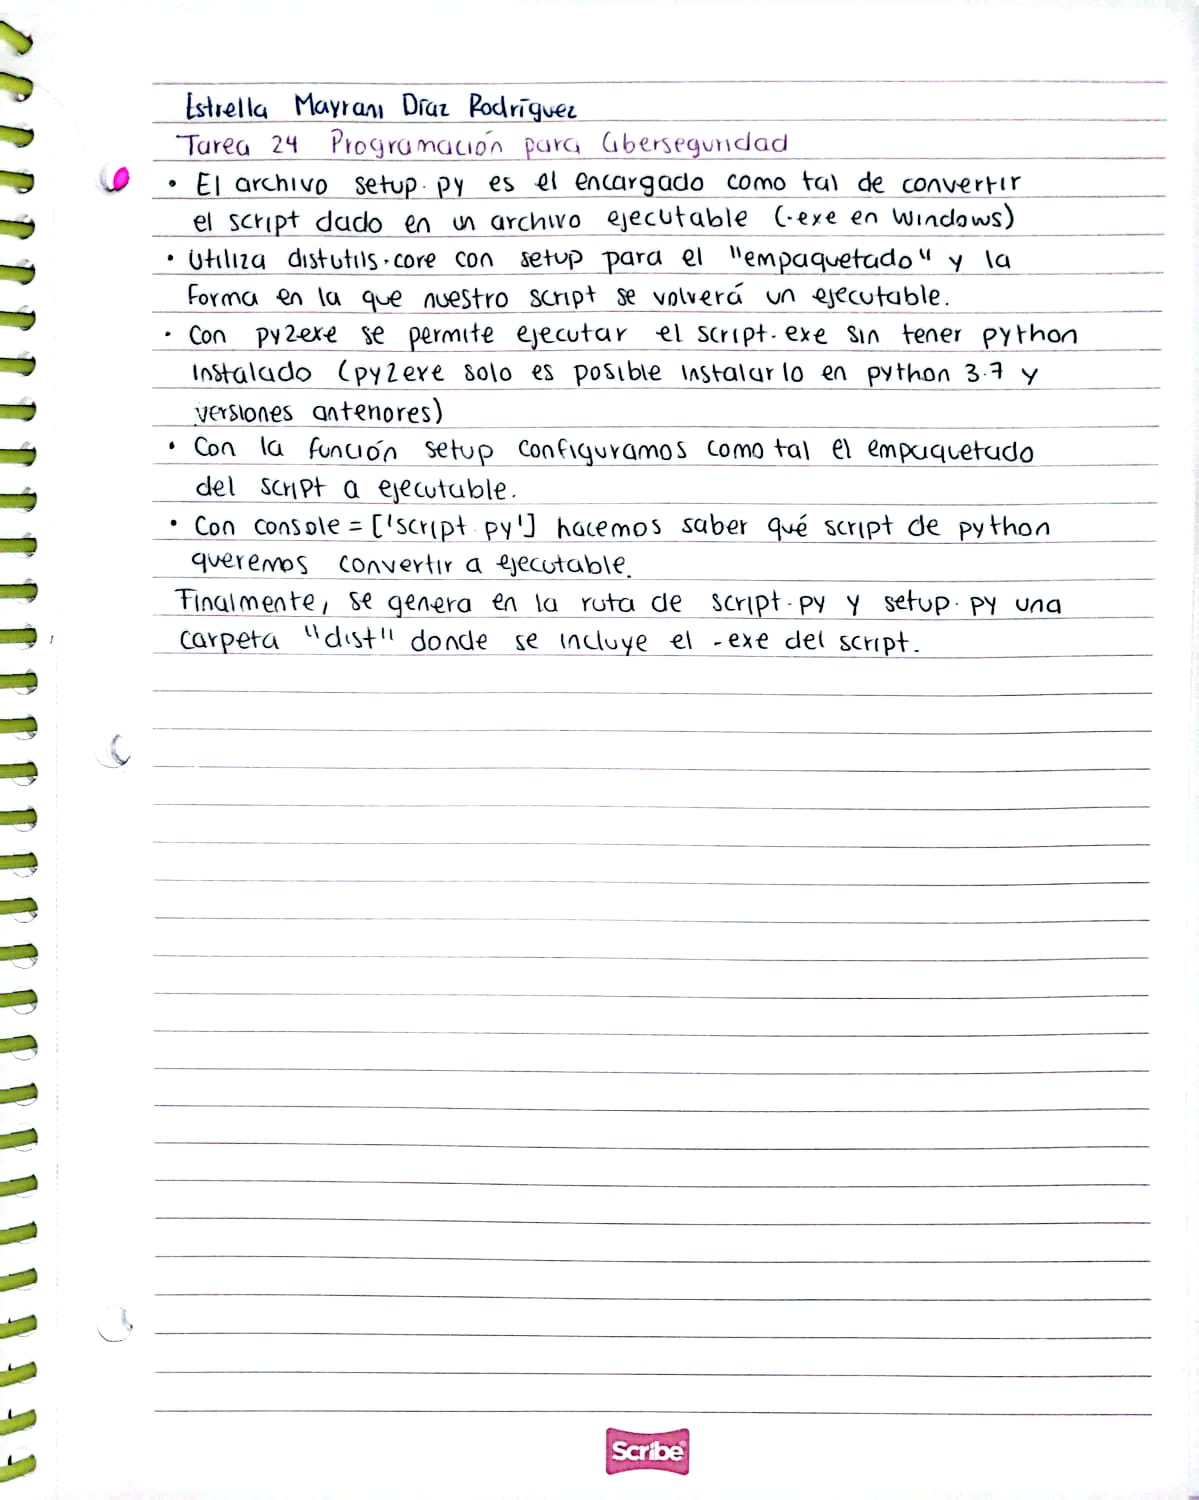 Estrella Mayrani Díaz Rodríguez
Tarea 24 Programación para Ciberseguridad
• El archivo setup.py es el encargado como tal de convertir
el script dado en un archivo ejecutable (.exe en Windows)
• Utiliza distutils.core con setup para el "empaquetado" y la
forma en la que nuestro script se volverá un ejecutable.
• Con py2exe se permite ejecutar el script.exe sin tener python
instalado (py2exe solo es posible instalarlo en python 3.7 y
versiones anteriores)
• Con la función setup configuramos como tal el empaquetado
del script a ejecutable.
• Con console = ['script.py'] hacemos saber qué script de python
queremos convertir a ejecutable.
Finalmente, se genera en la ruta de script.py y setup.py una
carpeta "dist" donde se incluye el .exe del script.
Scribe